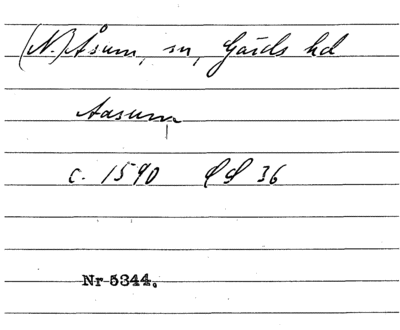 (N.) Åsum, sn, Gärds hd
Aasum
c. 1590 36
Nr 5344.